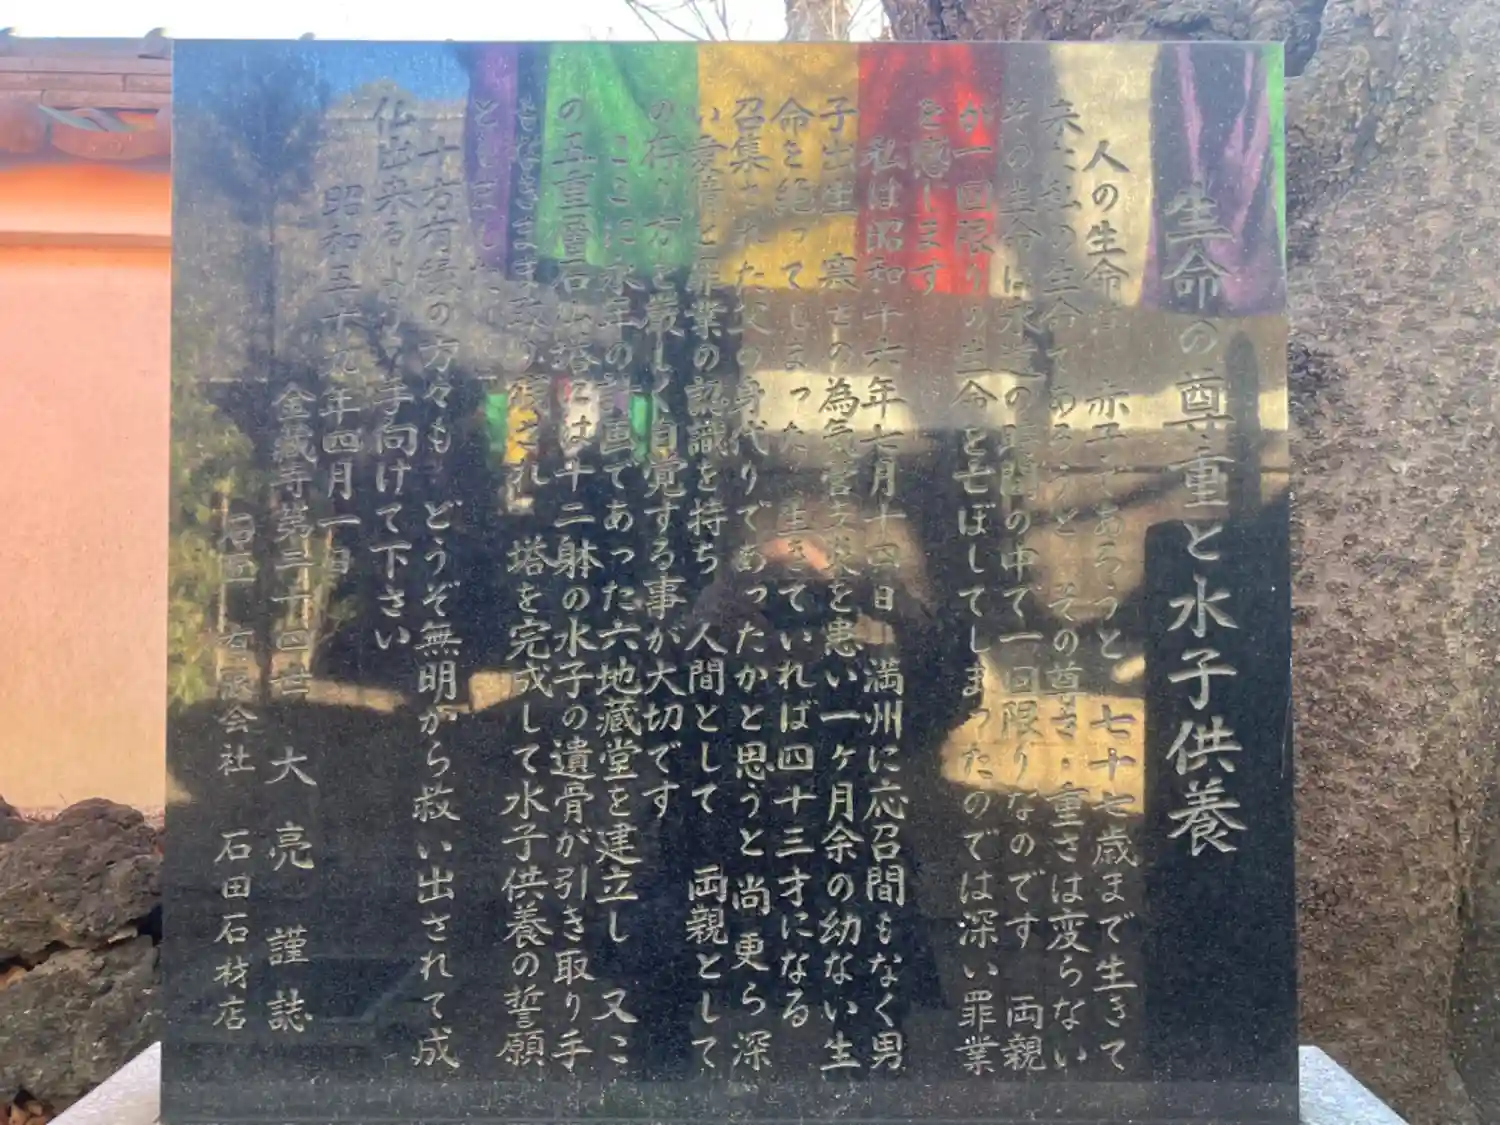 生命の尊重と水子供養
人の生命 赤子であろうと、七十七歳まで生きて
来た私の生命であろうと その尊さ・重さは変らない
その生命は永遠の時間の中で一回限りなのです 両親
が一回限りの生命を亡ぼしてしまったのでは深い罪業
を感じます
私は昭和十六年七月十四日 満州に応召間もなく男
子出生 寒さの為気管支炎を患い一ヶ月余の幼ない生
命を絶ってしまった 生きていれば四十三才になる
召集された父の身代りであったかと思うと尚更ら深
い愛情と罪業の認識を持ち 人間として 両親として
の在り方を厳しく自覚する事が大切です
ここに永年の計画であった六地蔵堂を建立し 又こ
の五重層石仏塔には十二躰の水子の遺骨が引き取り手
さなきまま残され 塔を完成して水子供養の誓願
と
十方有縁の方々も どうぞ無明から救い出されて成
仏出来るよう 手向けて下さい
昭和五十九年四月一日
金蔵寺第三十四世 大亮 謹誌
石匠 有限会社 石田石材店